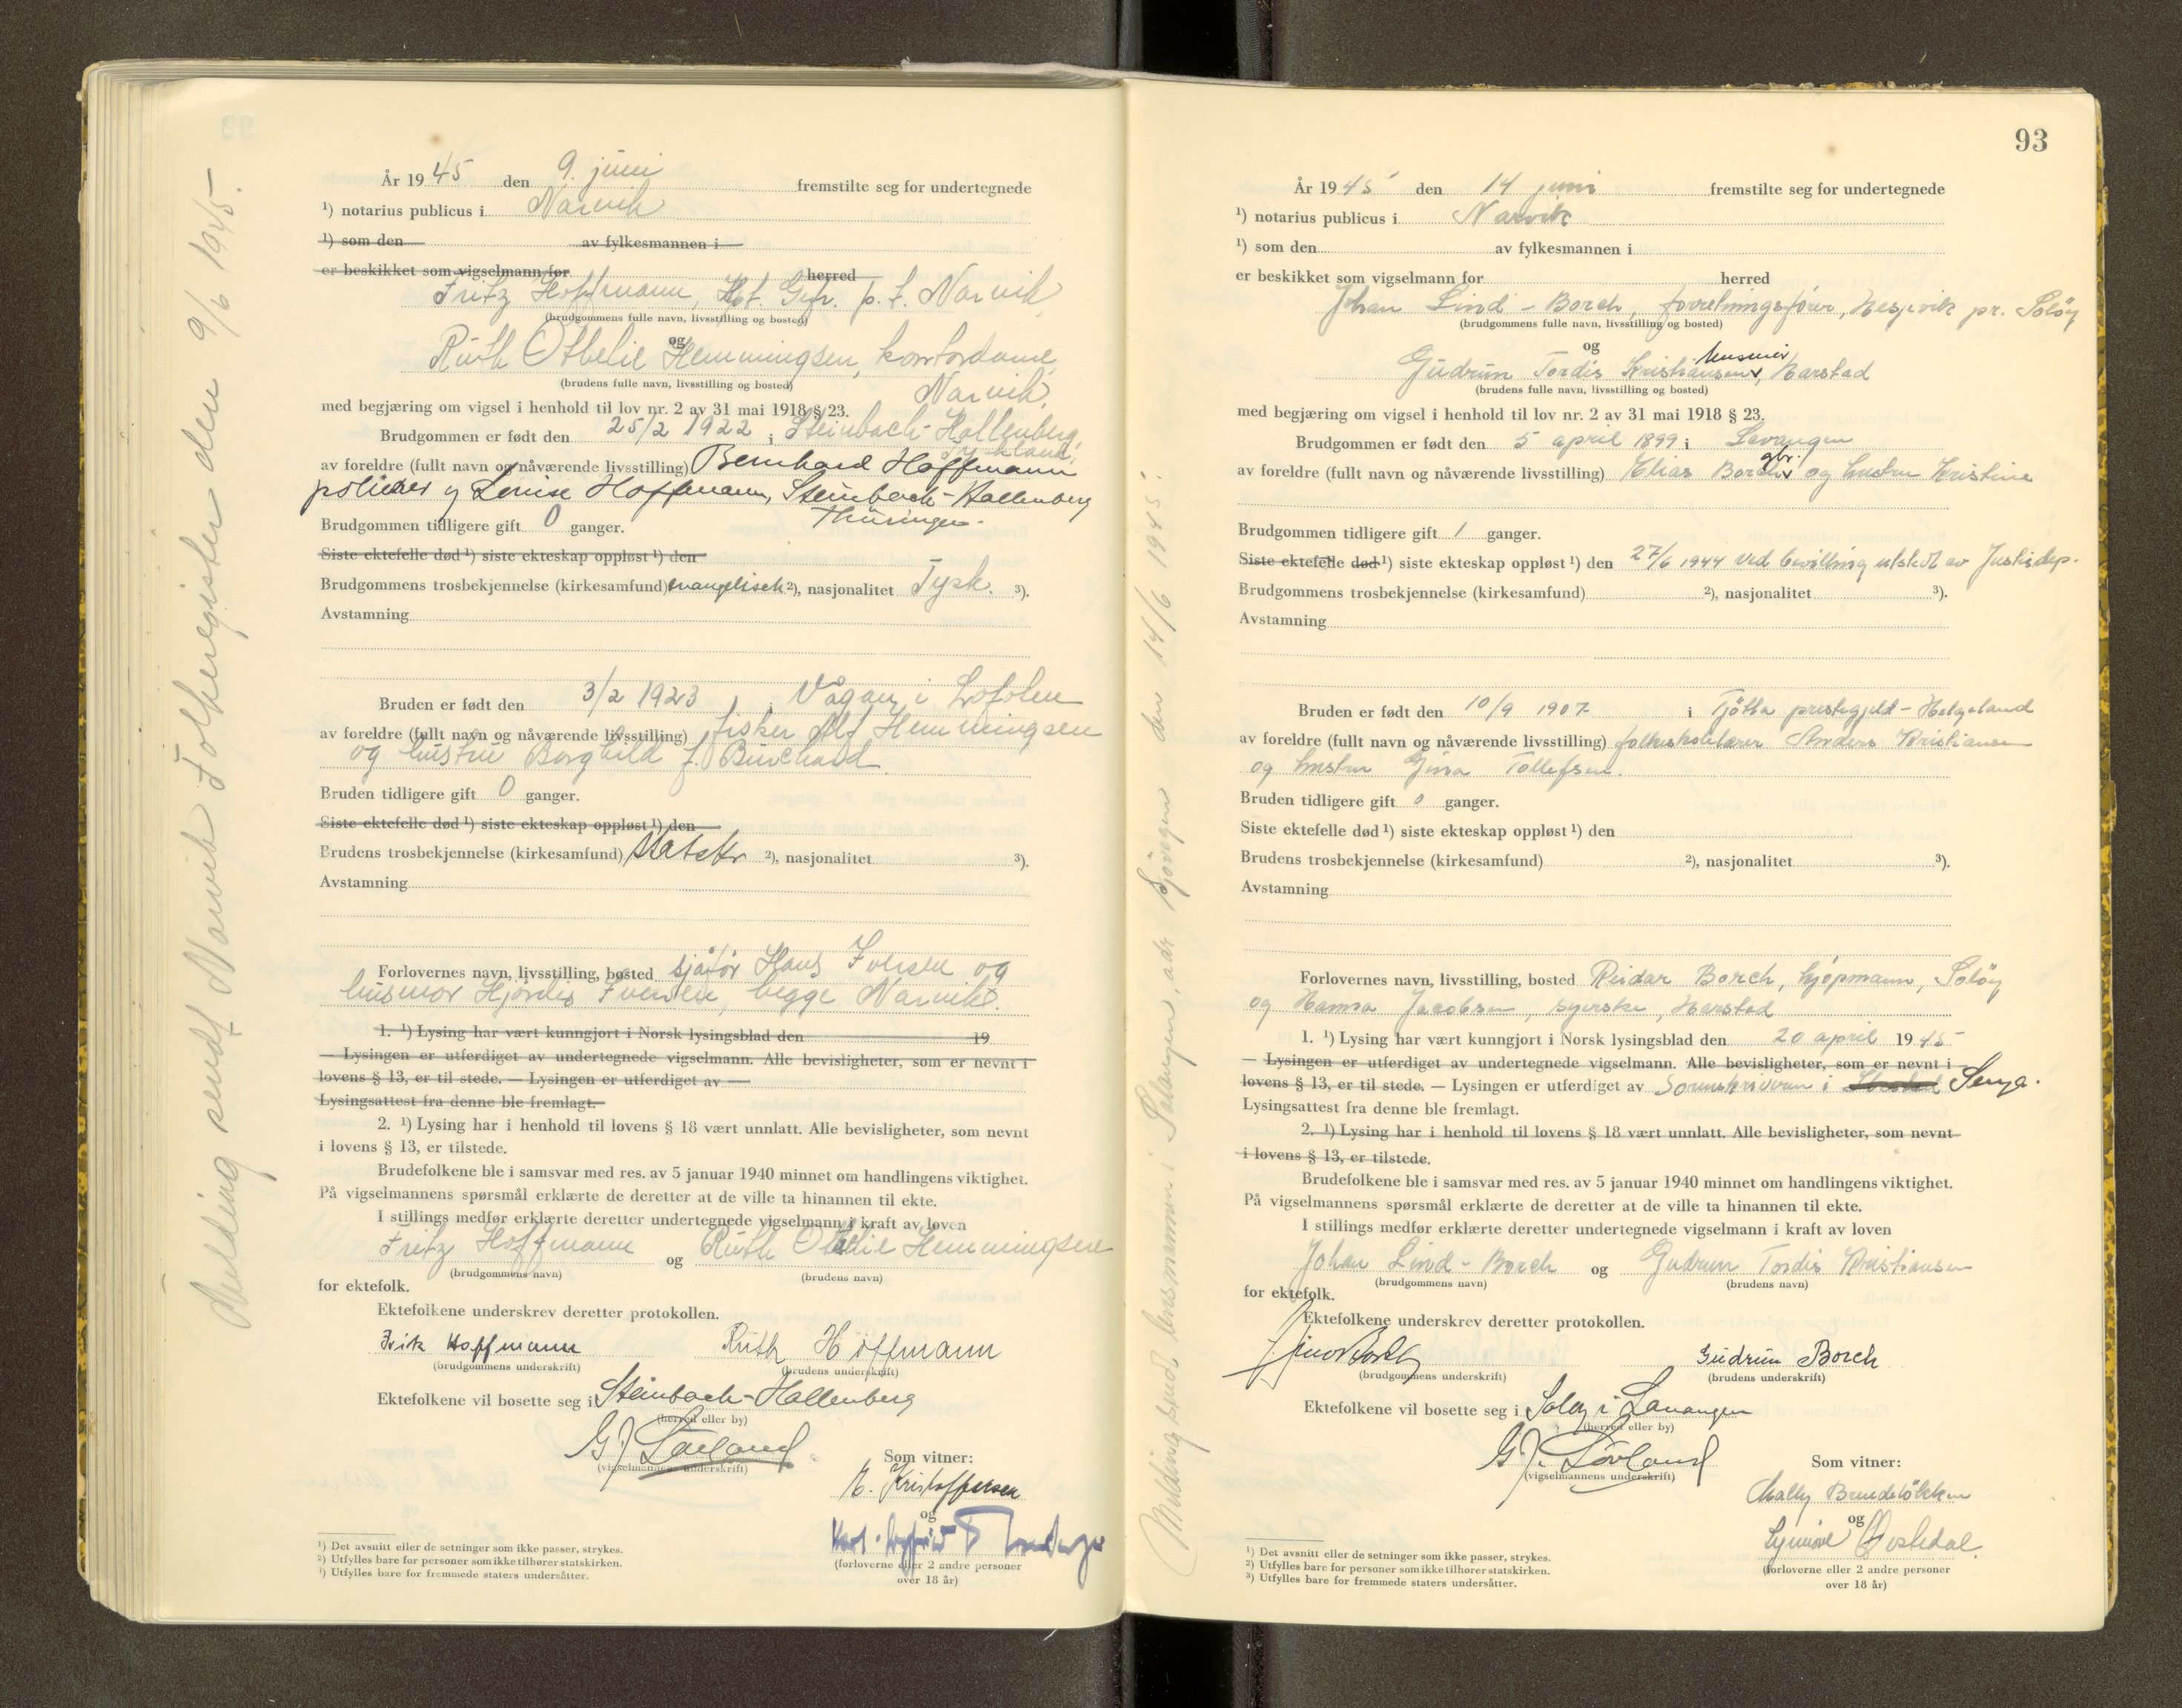 År 1945 den 9. juni fremstilte seg for undertegnede
¹) notarius publicus i Narvik
¹) som den av fylkesmannen i
er beskikket som vigselmann for herred
Fritz Hoffmann, Gefr. p.t. Narvik
(brudgommens fulle navn, livsstilling og bosted)
og
Ruth Othelie Hemmingsen, kontordame,
(brudens fulle navn, livsstilling og bosted)
Narvik.
med begjæring om vigsel i henhold til lov nr. 2 av 31 mai 1918 § 23.
Brudgommen er født den 25/2 1922 i Steinbach-Hallenberg,
Tyskland,
av foreldre (fullt navn og nåværende livsstilling) Bernhard Hoffmann
og Louise Hoffmann, Steinbach-Hallenberg
Thüringen.
Brudgommen tidligere gift 0 ganger.
Siste ektefelle død ¹) siste ekteskap oppløst ¹) den
Brudgommens trosbekjennelse (kirkesamfund) evangelisch ²), nasjonalitet Tysk. ³).
Avstamning
Bruden er født den 3/2 1923 i Vågan i Lofoten
av foreldre (fullt navn og nåværende livsstilling) fisker Alf Hemmingsen
og hustru Borghild f. Burchard.
Bruden tidligere gift 0 ganger.
Siste ektefelle død ¹) siste ekteskap oppløst ¹) den
Brudens trosbekjennelse (kirkesamfund) Statskr ²), nasjonalitet ³).
Avstamning
Forlovernes navn, livsstilling, bosted sjåfør Hans Iversen og
husmor Hjördis Iversen, begge Narvik.
1. ¹) Lysing har vært kunngjort i Norsk lysingsblad den 19
— Lysingen er utferdiget av undertegnede vigselmann. Alle bevisligheter, som er nevnt i
lovens § 13, er til stede. — Lysingen er utferdiget av —
Lysingsattest fra denne ble fremlagt.
2. ¹) Lysing har i henhold til lovens § 18 vært unnlatt. Alle bevisligheter, som nevnt
i lovens § 13, er tilstede.
Brudefolkene ble i samsvar med res. av 5 januar 1940 minnet om handlingens viktighet.
På vigselmannens spørsmål erklærte de deretter at de ville ta hinannen til ekte.
I stillings medfør erklærte deretter undertegnede vigselmann i kraft av loven
Fritz Hoffmann og Ruth Othelie Hemmingsen
(brudgommens navn) (brudens navn)
for ektefolk.
Ektefolkene underskrev deretter protokollen.
Hoffmann Ruth Hoffmann
(brudgommens underskrift) (brudens underskrift)
Ektefolkene vil bosette seg i Steinbach-Hallenberg
(herred eller by)
G. J. Lövland
(vigselmannens underskrift)
Som vitner:
Kristoffersen
og
(forloverne eller 2 andre personer
over 18 år)
¹) Det avsnitt eller de setninger som ikke passer, strykes.
²) Utfylles bare for personer som ikke tilhører statskirken.
³) Utfylles bare for fremmede staters undersåtter.
Melding sendt Narvik Folkeregister den 9/6 1945.
93
År 1945 den 14 juni fremstilte seg for undertegnede
¹) notarius publicus i Narvik
¹) som den av fylkesmannen i
er beskikket som vigselmann for herred
Johan Lind-Borch, forretningsfører, pr. Soløy
(brudgommens fulle navn, livsstilling og bosted)
og
husmor
Gudrun Tordis Kristiansen, Harstad
(brudens fulle navn, livsstilling og bosted)
med begjæring om vigsel i henhold til lov nr. 2 av 31 mai 1918 § 23.
Brudgommen er født den 5 april 1899 i Lavangen
gbr.
av foreldre (fullt navn og nåværende livsstilling) Elias Borch og hustru Kristine
Brudgommen tidligere gift 1 ganger.
Siste ektefelle død ¹) siste ekteskap oppløst ¹) den 27/6 1944 ved bevilling utstedt av Justisdep.
Brudgommens trosbekjennelse (kirkesamfund) ²), nasjonalitet ³).
Avstamning
Bruden er født den 10/9 1907 i Tjötta prestegjeld - Helgeland
av foreldre (fullt navn og nåværende livsstilling) folkeskolelærer Anders Kristiansen
og hustru Gina Tollefsen.
Bruden tidligere gift 0 ganger.
Siste ektefelle død ¹) siste ekteskap oppløst ¹) den
Brudens trosbekjennelse (kirkesamfund) ²), nasjonalitet ³).
Avstamning
Forlovernes navn, livsstilling, bosted Reidar Borch, kjøpmann, Soløy
og Hanna Jacobsen, syerske, Harstad
1. ¹) Lysing har vært kunngjort i Norsk lysingsblad den 20 april 1945
— Lysingen er utferdiget av undertegnede vigselmann. Alle bevisligheter, som er nevnt i
lovens § 13, er til stede. — Lysingen er utferdiget av Sorenskriveren i Senja.
Lysingsattest fra denne ble fremlagt.
2. ¹) Lysing har i henhold til lovens § 18 vært unnlatt. Alle bevisligheter, som nevnt
i lovens § 13, er tilstede.
Brudefolkene ble i samsvar med res. av 5 januar 1940 minnet om handlingens viktighet.
På vigselmannens spørsmål erklærte de deretter at de ville ta hinannen til ekte.
I stillings medfør erklærte deretter undertegnede vigselmann i kraft av loven
Johan Lind-Borch og Gudrun Tordis Kristiansen
(brudgommens navn) (brudens navn)
for ektefolk.
Ektefolkene underskrev deretter protokollen.
Gudrun Borch
(brudgommens underskrift) (brudens underskrift)
Ektefolkene vil bosette seg i Soløy i Lavangen
(herred eller by)
G. J. Lövland
(vigselmannens underskrift)
Som vitner:
Mally
og
(forloverne eller 2 andre personer
over 18 år)
¹) Det avsnitt eller de setninger som ikke passer, strykes.
²) Utfylles bare for personer som ikke tilhører statskirken.
³) Utfylles bare for fremmede staters undersåtter.
Melding sendt lensmannen i Salangen, adr. Sjøvegan den 14/6 1945.